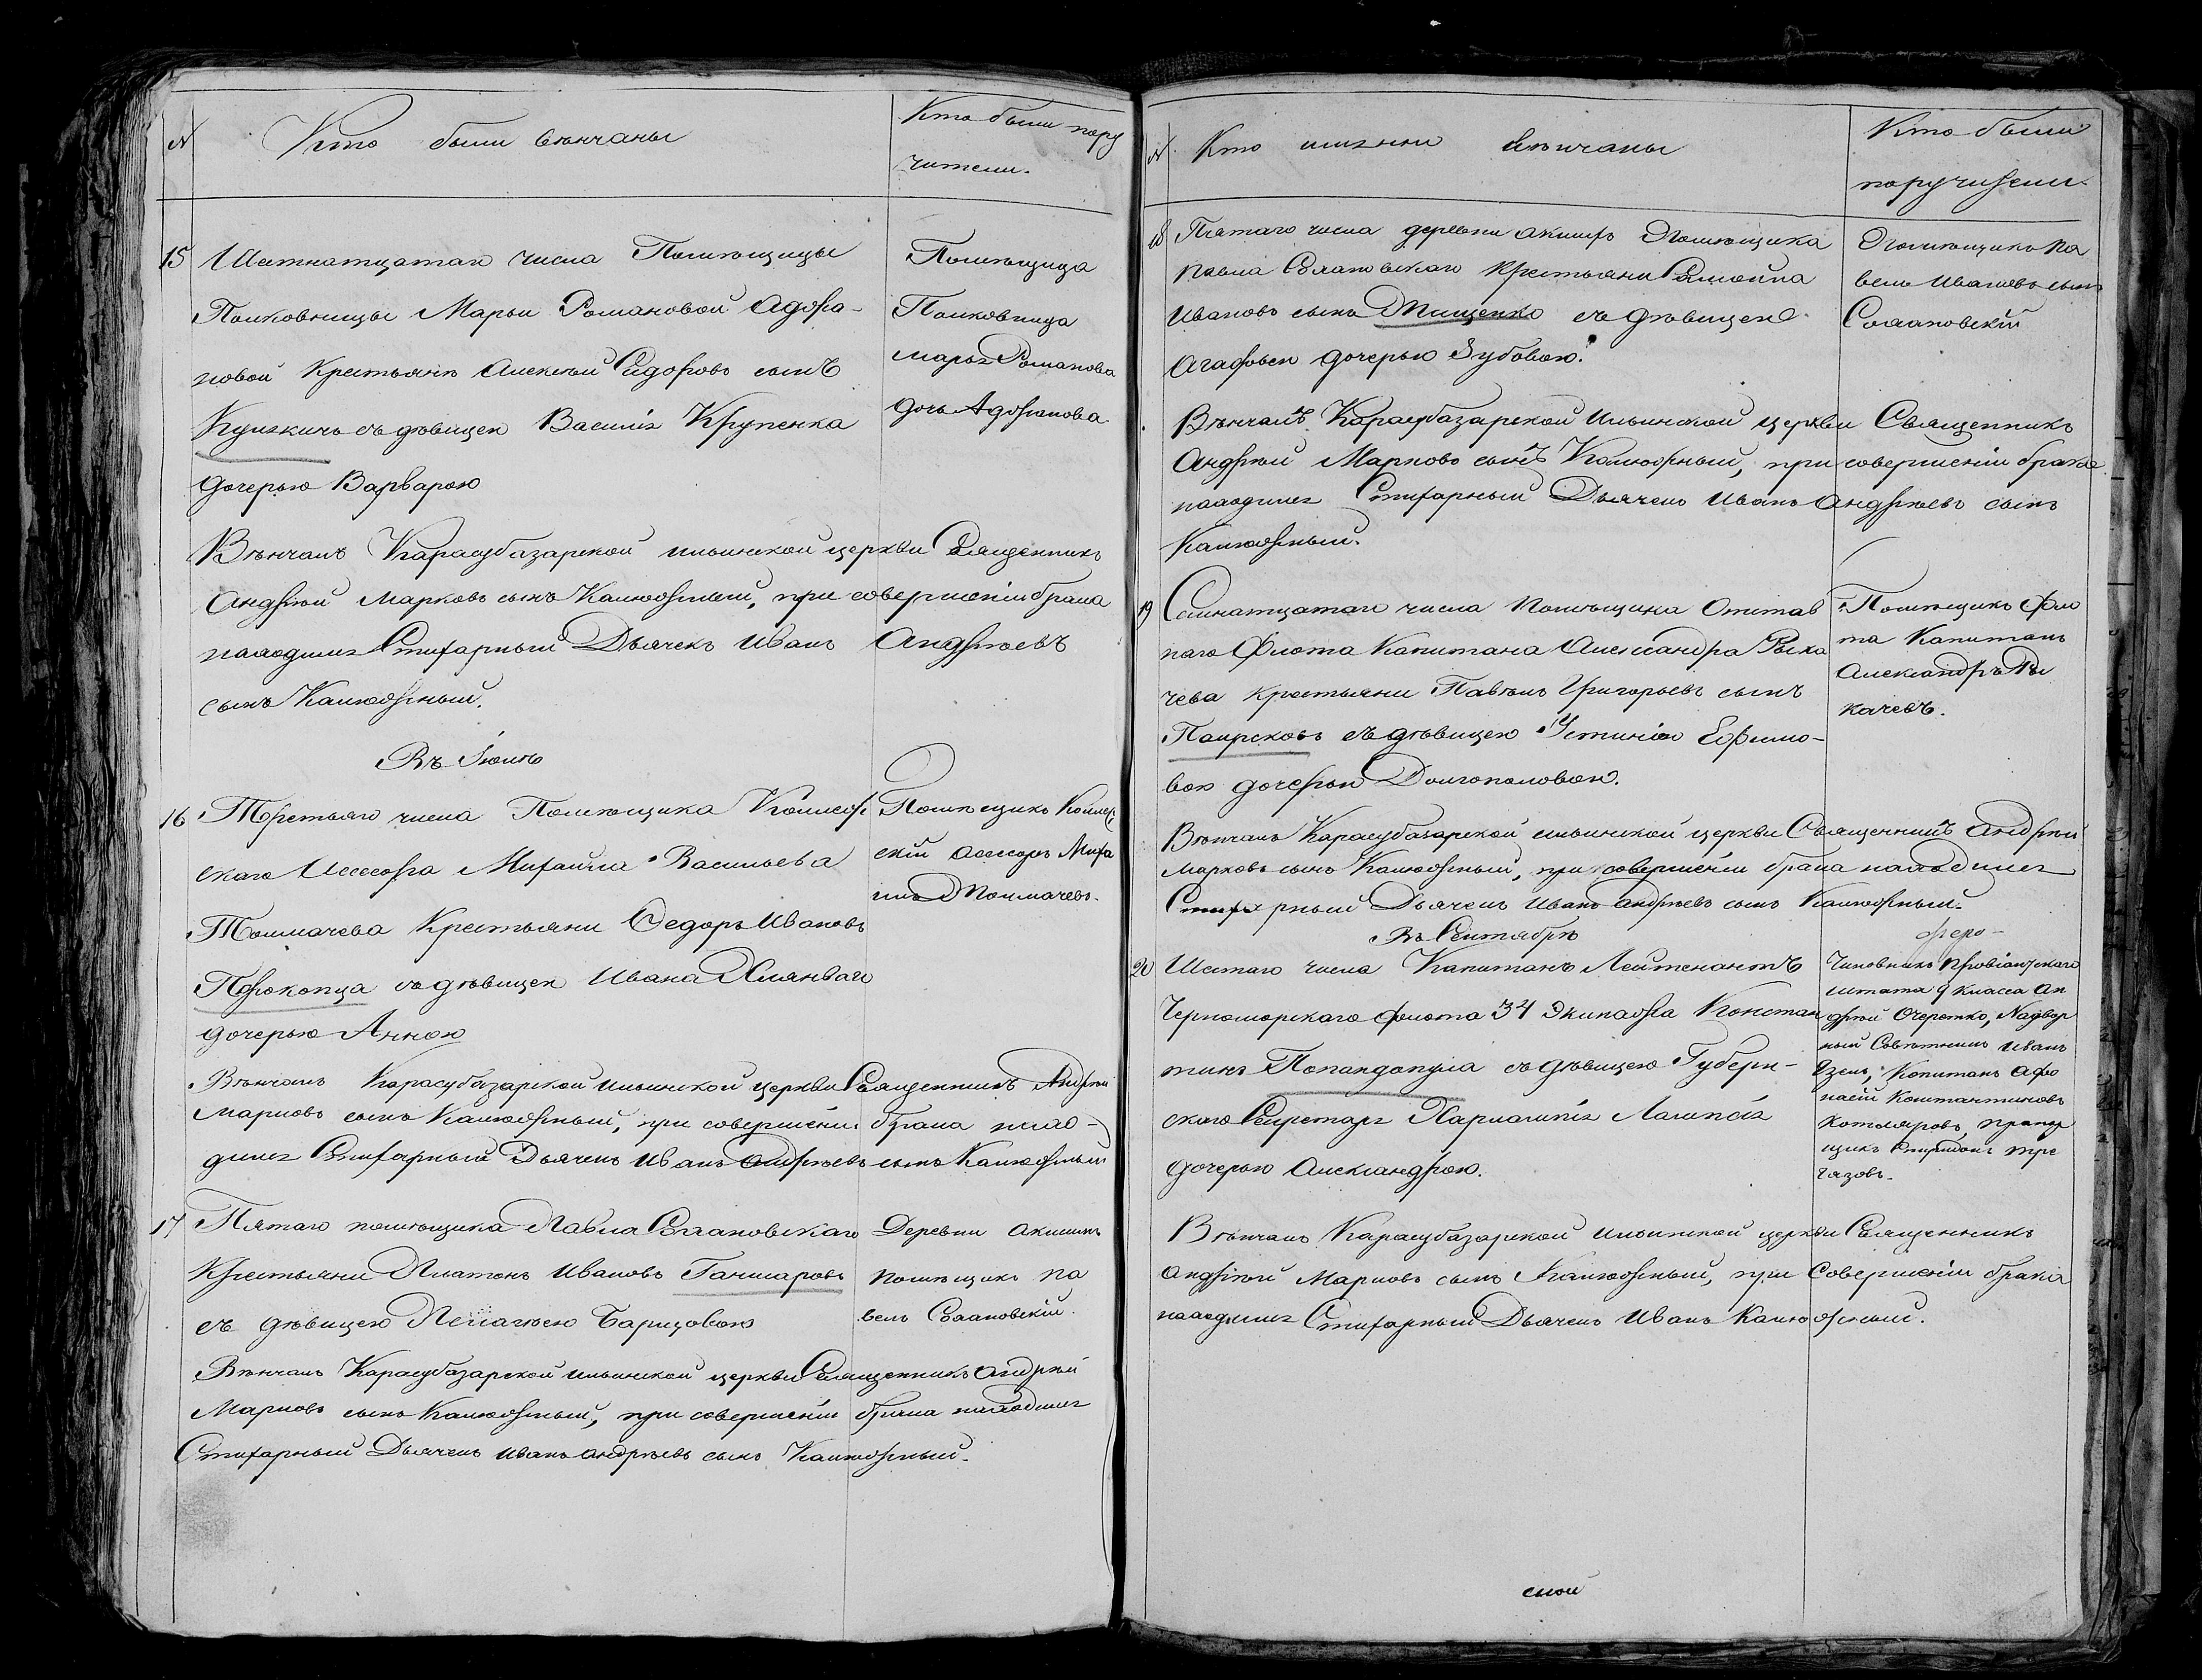 №
Кто были вѣнчаны
Кто были пору
чители.
15
Шестнатцатаго числа Помѣщицы
Полковницы Марьи Романовой Адора-
новой Крестьянъ Алексѣй Сидоровъ сынъ
съ дѣвицею Василія Крупенка
дочерью Варварою
Помѣщица
Полковница
Марья Романова
дочь
Вѣнчалъ Карасубазарской ильинской церкви Священникъ
Андрѣй Марковъ сынъ Калюжный, при совершеніи брака
находился Стихарный Дьячекъ Иванъ Андрѣевъ
сынъ Калюжный.
Въ Іюлѣ
16
Третьяго числа Помѣщика Коллеж
скаго Ассесора Михайла Васильева
Толмачева Крестьяни Ѳедоръ Ивановъ
Прокопца съ дѣвицею Ивана
дочерью Анною
Помѣщикъ Коллеж
скій Асессоръ Миха
илъ Толмачевъ.
Вѣнчалъ Карасубазарской ильинской церкви Священникъ Андрѣй
Марковъ сынъ Калюжный, при совершеніи брака нахо-
дился Стихарный Дьячекъ Иванъ Андрѣевъ сынъ Калюжный
17
Пятаго помѣщика Павла Сѣлановскаго
Крестьяни Платонъ Ивановъ Ганчаровъ
съ дѣвицею Пелагѣею Барщовою
Деревни Акшинъ
помѣщикъ Па
велъ Сѣлановскій.
Вѣнчалъ Карасубазарской ильинской церкви Священникъ Андрѣй
Марковъ сынъ Калюжный, при совершеніи брака находился
Стихарный Дьячекъ Иванъ Андрѣевъ сынъ Калюжный.
№
Кто именно вѣнчаны
Кто были
поручители.
18
Пятаго числа деревни Акшинъ Помѣщика
Павла Сѣлановскаго Крестьяни
Ивановъ сынъ Тищенко съ дѣвицею
Агафьею дочерью Зубовою.
Помѣщикъ Па
велъ Ивановъ сынъ
Солановскій
Вѣнчалъ Карасубазарской Ильинской церкви Священникъ
Андрѣй Марковъ сынъ Калюжный, при совершеніи брака
находился Стихарный Дьячекъ Иванъ Андрѣевъ сынъ
Калюжный.
19
Семнатцатаго числа Помѣщика Отстав
наго Флота Капитана Александра Рыка
чева Крестьяни Павелъ Григорьевъ сынъ
съ дѣвицею Устиніею Ефимо-
вою дочерью Долгополовою.
Помѣщикъ фло
та Капитанъ
Александръ Ры
качевъ.
Вѣнчалъ Карасубазарской ильинской церкви Священникъ Андрѣй
Марковъ сынъ Калюжный, при совершеніи брака находился
Стихарный Дьячекъ Иванъ Андрѣевъ сынъ Калюжный.
Въ Сентябрѣ
20
Шестаго числа Капитанъ Лейтенантъ
Черноморскаго флота 34 Экипажа Констан
тинъ Попандопула съ дѣвицею Губерн-
скаго Секретаря Харлампія
дочерью Александрою.
Чиновникъ Провіантскаго
штата 9 класса Ан
дрѣй Очеретко, Надвор
ный Совѣтникъ Иванъ
Капитанъ Афо
насій Константиновъ
Котляровъ, прапор
щикъ Спиридонъ тре
газовъ.
Вѣнчалъ Карасубазарской ильинской церкви Священникъ
Андрѣй Марковъ сынъ Калюжный, при совершеніи брака
находился Стихарный Дьячекъ Иванъ Калюжный.